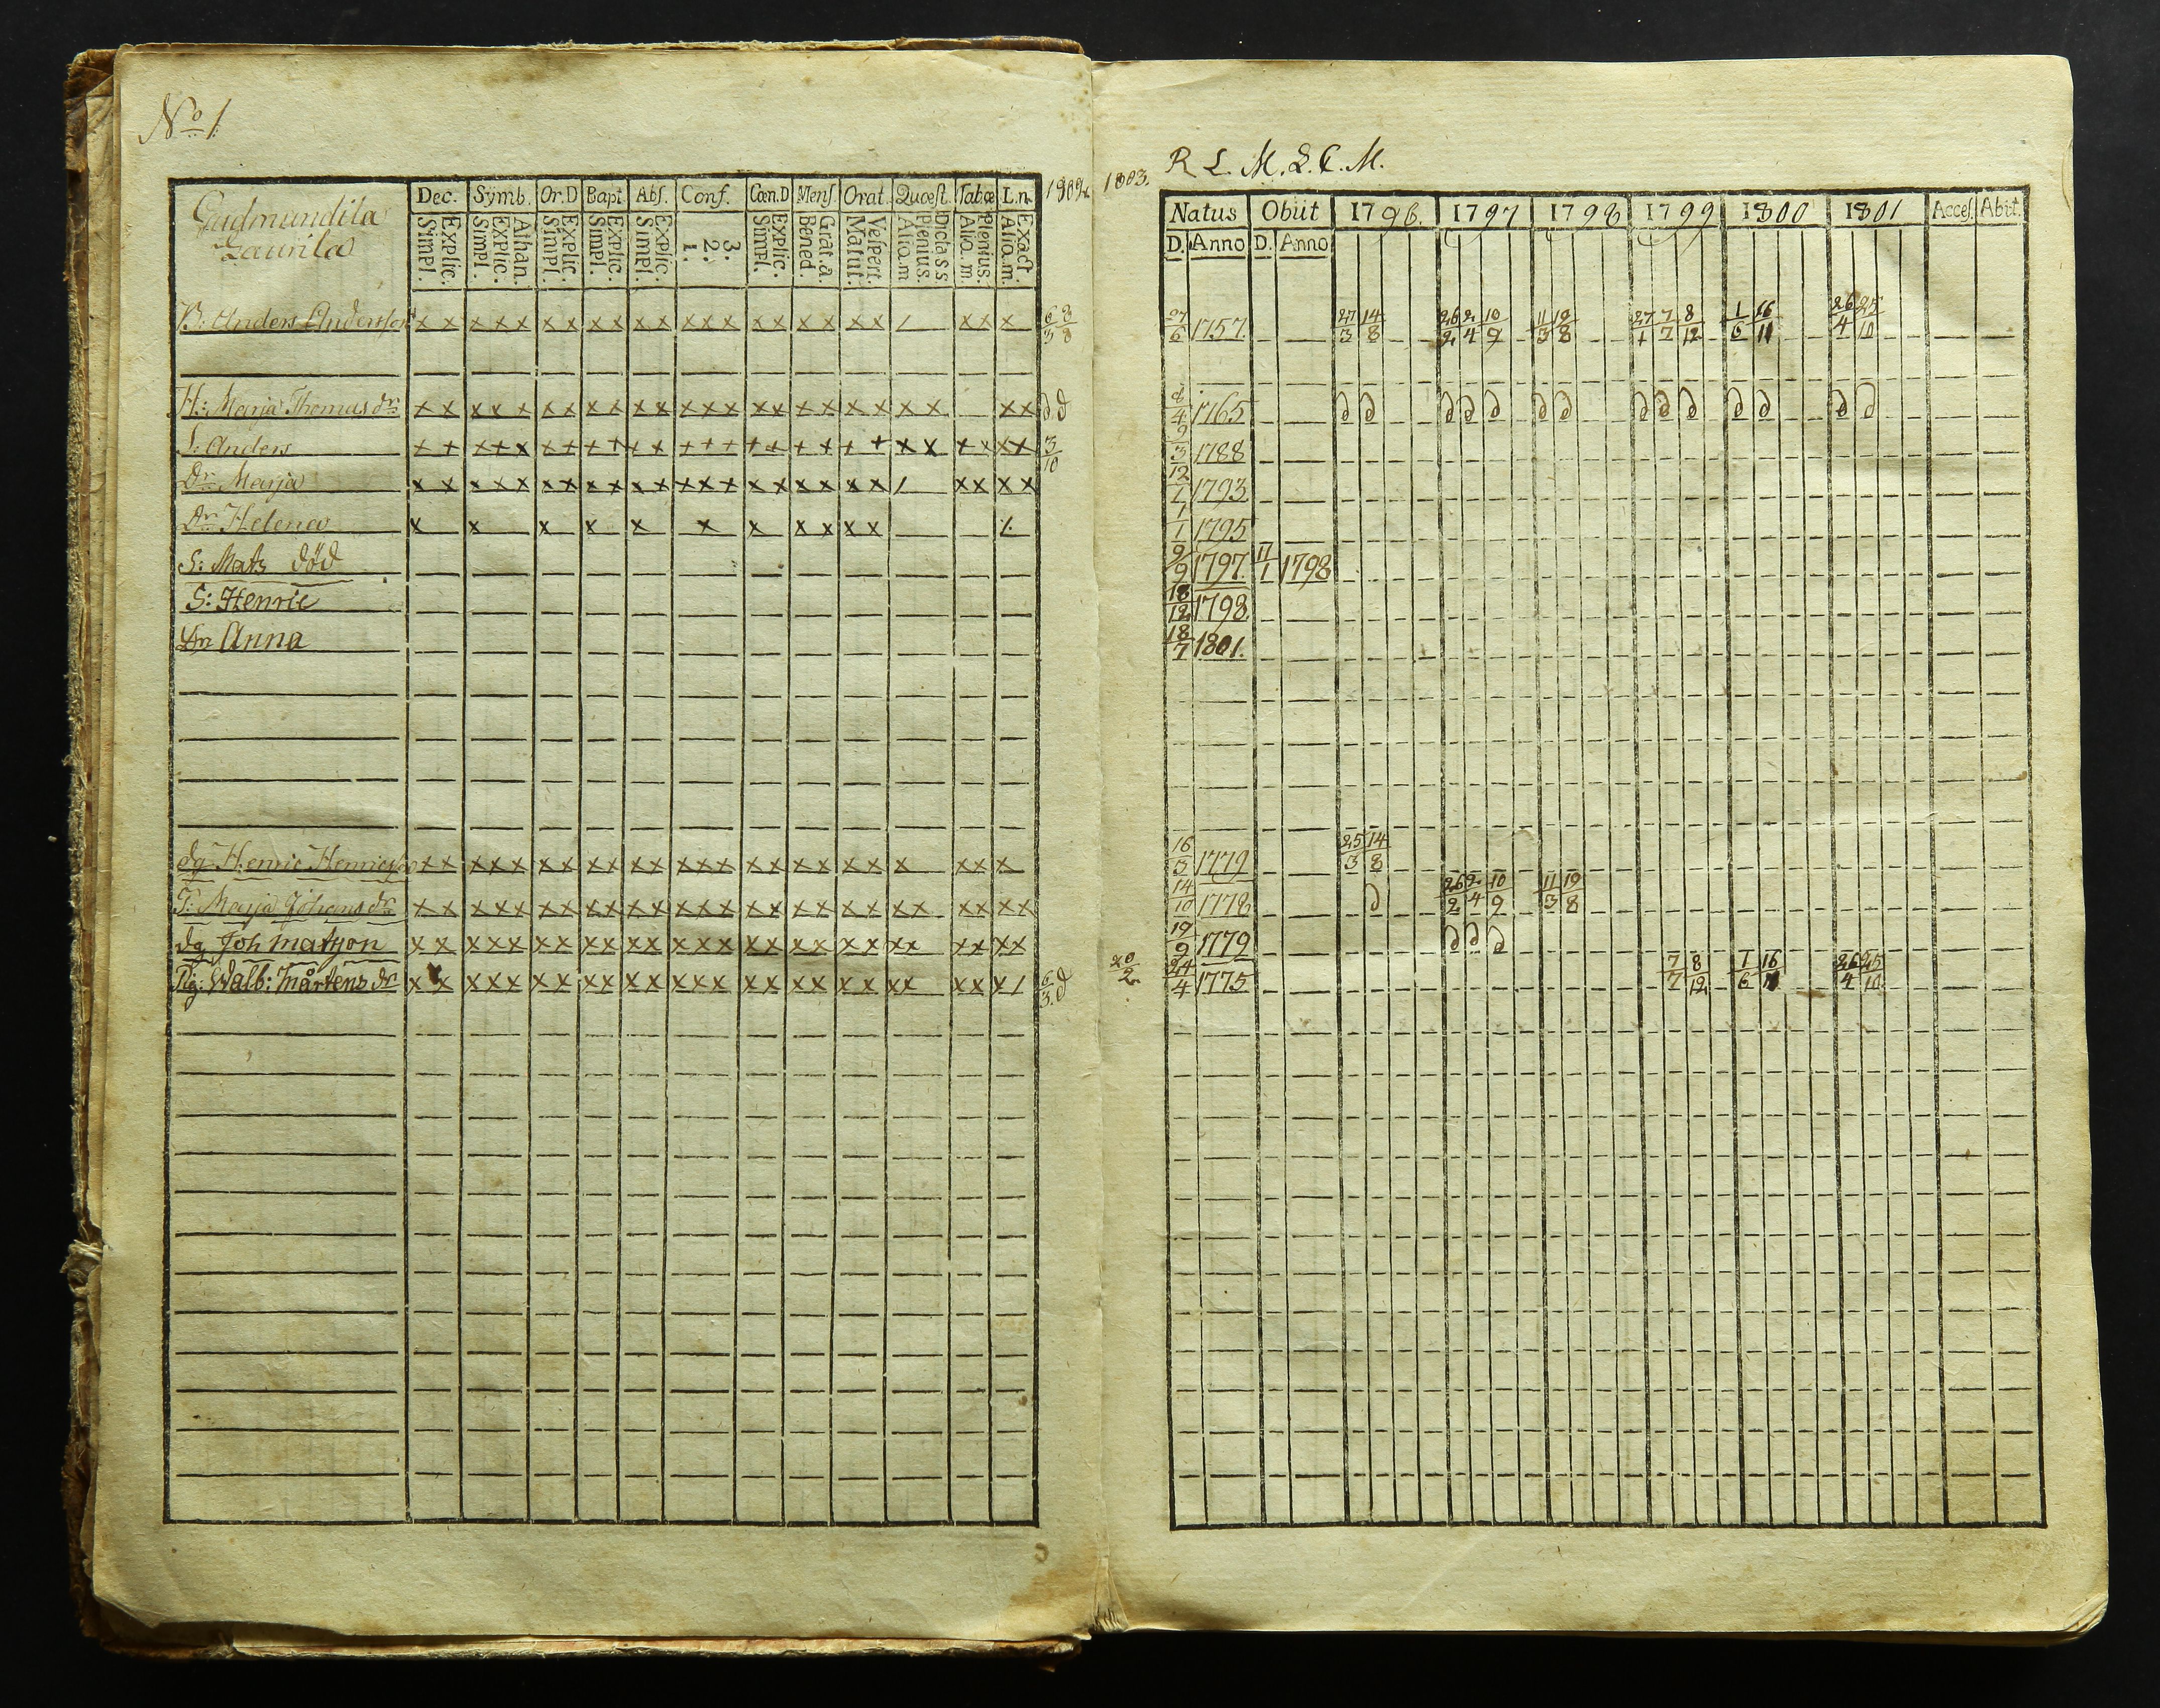 No 1
R L. M. L. C. M.
1802. 1803.
Gudmundila
Laurila
Dec. Symb. Or.D Bapt. Abs. Conf. Cœn.D Mens. Orat. Quœst. Tabœ L.n.
Explic. Simpl. Athan. Explic. Simpl. Explic. Simpl. Explic. Simpl. Explic. Simpl. 3. 2. 1. Explic. Simpl. Grat.a. Bened. Vespert. Matut. Dicta s s Plenius. Alio.m. Plenius. Alio.m. Exact. Alio.m.
Natus Obiit 1796. 1797 1798 1799 1800 1801 Acces. Abit.
D. Anno D. Anno
B: Anders Andersson x x x x x x x x x x x x x x x x x x x x / x x x 6/3 8/8 27/6 1757. 27/3 14/8 26/2 2/4 10/9 11/3 19/8 27/1 7/7 8/12 1/6 16/11 26/4 25/10
H: Marja Thomas dr x x x x x x x x x x x x x x x x x x x x x x x x ∂ ∂ 8/4 1765 ∂ ∂ ∂ ∂ ∂ ∂ ∂ ∂ ∂ ∂ ∂ ∂ ∂ ∂
S: Anders + + + + x + + + + + + + + + + + + + + + x x + x x x 3/10 9/3 1788
Dr Marja x x x x x x x x x x x x x x x x x x x x / x x x x 12/1 1793
Dr Helena x x x x x x x x x x x /. 1/1 1795
S: Mats död 9/9 1797. 11/1 1798
S: Henric 18/12 1798.
Dr Anna 18/7 1801.
dg Henric Henricsson x x x x x x x x x x x x x x x x x x x x x x x x 16/3 1779 25/3 14/8
P: Marja Johans dr x x x x x x x x x x x x x x x x x x x x x x x x x x 14/10 1778 ∂ 26/2 2/4 10/9 11/3 19/8
dg Joh Matsson x x x x x x x x x x x x x x x x x x x x x x x x x x 19/9 1779 ∂ ∂ ∂
Pig: Walb: Mårtens dr x x x x x x x x x x x x x x x x x x x x x x x x x / 6/3. ∂ 20/2 24/4 1775 7/7 8/12 1/6 16/11 26/4 25/10